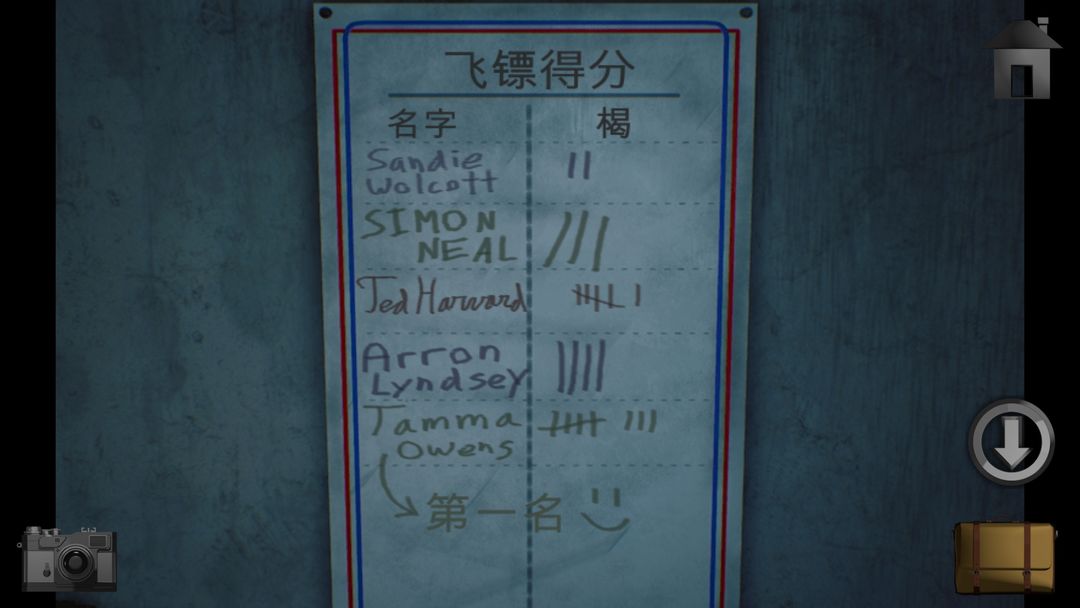 飞镖得分
名字 楬
Sandie
Wolcott
SIMON
NEAL
Ted Harward
Arron
Lyndsey
Tamma
Owens
第一名